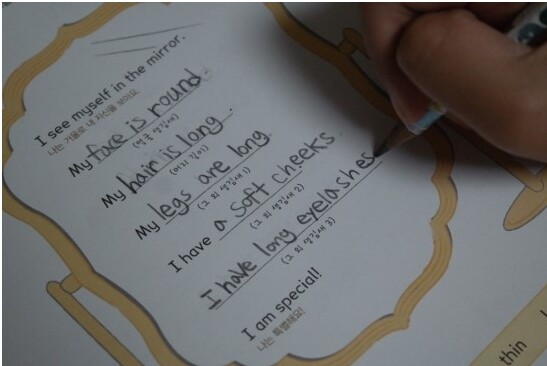 I see myself in the mirror.
나는 거울로 내 자신을 보아요.
My face is round
(얼굴 생김새)
My hair is long.
(머리 길이)
My legs are long.
(그 외 생김새 1)
I have a soft cheeks.
(그 외 생김새 2)
I have long eyelashes
(그 외 생김새 3)
I am special!
나는 특별해요!
thin